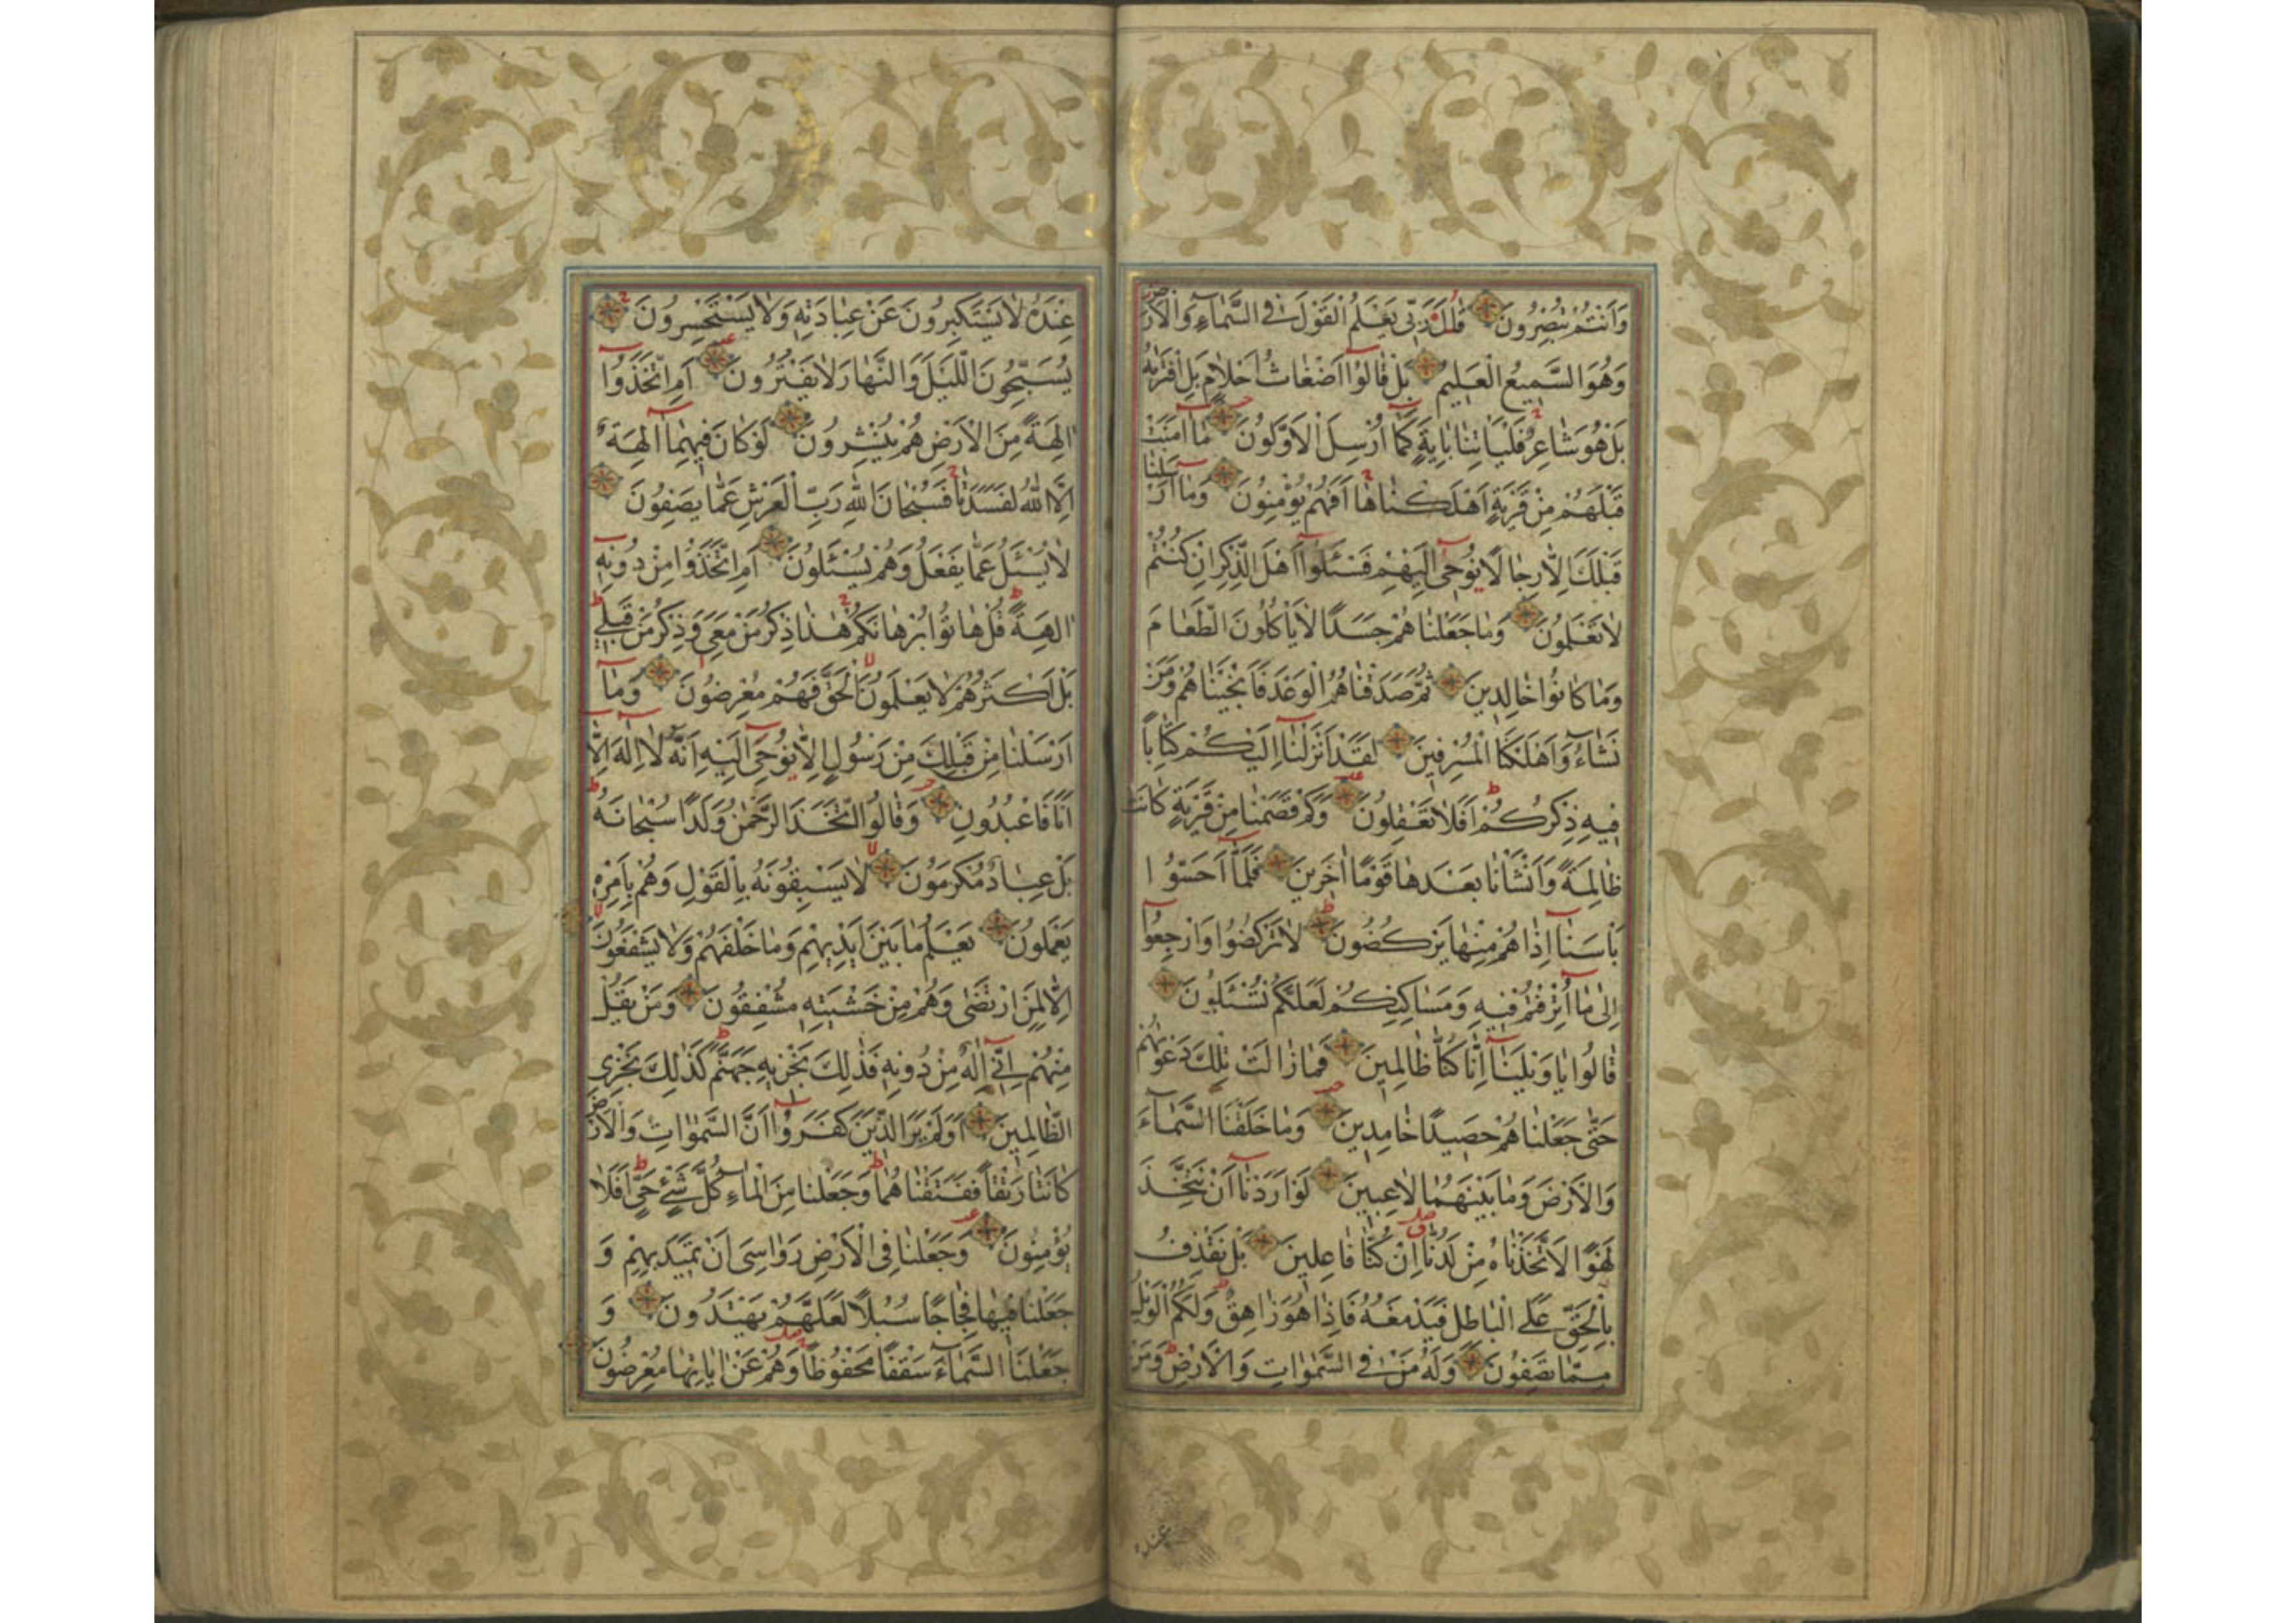 وَاَنْتُمْ تُبْصِرُونَ قَالَ رَبّ۪ي يَعْلَمُ الْقَوْلَ فِي السَّمَآءِ وَالْاَرْضِ
وَهُوَ السَّمِيعُ الْعَلِيمُ بَلْ قَالُوٓا اَضْغَاثُ اَحْلَامٍ بَلِ افْتَرٰيهُ
بَلْ هُوَ شَاعِرٌ فَلْيَاْتِنَا بِاٰيَةٍ كَمَٓا اُرْسِلَ الْاَوَّلُونَ مَٓا اٰمَنَتْ
قَبْلَهُمْ مِنْ قَرْيَةٍ اَهْلَكْنَاهَا اَفَهُمْ يُؤْمِنُونَ وَمَٓا اَرْسَلْنَا
قَبْلَكَ اِلَّا رِجَالًا نُوحِي اِلَيْهِمْ فَسْئَلُوٓا اَهْلَ الذِّكْرِ اِنْ كُنْتُمْ
لَا تَعْلَمُونَ وَمَا جَعَلْنَاهُمْ جَسَدًا لَا يَاْكُلُونَ الطَّعَامَ
وَمَا كَانُوا خَالِدِينَ ثُمَّ صَدَقْنَاهُمُ الْوَعْدَ فَاَنْجَيْنَاهُمْ وَمَنْ
نَشَآءُ وَاَهْلَكْنَا الْمُسْرِفِينَ لَقَدْ اَنْزَلْنَٓا اِلَيْكُمْ كِتَابًا
فِيهِ ذِكْرُكُمْ اَفَلَا تَعْقِلُونَ وَكَمْ قَصَمْنَا مِنْ قَرْيَةٍ كَانَتْ
ظَالِمَةً وَاَنْشَاْنَا بَعْدَهَا قَوْمًا اٰخَرِينَ فَلَمَّٓا اَحَسُّوا
بَاْسَنَٓا اِذَا هُمْ مِنْهَا يَرْكُضُونَ لَا تَرْكُضُوا وَارْجِعُوٓا
اِلٰى مَٓا اُتْرِفْتُمْ فِيهِ وَمَسَاكِنِكُمْ لَعَلَّكُمْ تُسْئَلُونَ
قَالُوا يَا وَيْلَنَٓا اِنَّا كُنَّا ظَالِمِينَ فَمَا زَالَتْ تِلْكَ دَعْوٰيهُمْ
حَتّٰى جَعَلْنَاهُمْ حَصِيدًا خَامِدِينَ وَمَا خَلَقْنَا السَّمَآءَ
وَالْاَرْضَ وَمَا بَيْنَهُمَا لَاعِبِينَ لَوْ اَرَدْنَٓا اَنْ نَتَّخِذَ
لَهْوًا لَاتَّخَذْنَاهُ مِنْ لَدُنَّا اِنْ كُنَّا فَاعِلِينَ بَلْ نَقْذِفُ
بِالْحَقِّ عَلَى الْبَاطِلِ فَيَدْمَغُهُ فَاِذَا هُوَ زَاهِقٌ وَلَكُمُ الْوَيْلُ
مِمَّا تَصِفُونَ وَلَهُ مَنْ فِي السَّمٰوَاتِ وَالْاَرْضِ وَمَنْ
عنده
عِنْدَهُ لَا يَسْتَكْبِرُونَ عَنْ عِبَادَتِهِ وَلَا يَسْتَحْسِرُونَ
يُسَبِّحُونَ الَّيْلَ وَالنَّهَارَ لَا يَفْتُرُونَ اَمِ اتَّخَذُوٓا
اٰلِهَةً مِنَ الْاَرْضِ هُمْ يُنْشِرُونَ لَوْ كَانَ فِيهِمَٓا اٰلِهَةٌ
اِلَّا اللّٰهُ لَفَسَدَتَا فَسُبْحَانَ اللّٰهِ رَبِّ الْعَرْشِ عَمَّا يَصِفُونَ
لَا يُسْئَلُ عَمَّا يَفْعَلُ وَهُمْ يُسْئَلُونَ اَمِ اتَّخَذُوا مِنْ دُونِهِٓ
اٰلِهَةً قُلْ هَاتُوا بُرْهَانَكُمْ هٰذَا ذِكْرُ مَنْ مَعِيَ وَذِكْرُ مَنْ قَبْلِي
بَلْ اَكْثَرُهُمْ لَا يَعْلَمُونَ الْحَقَّ فَهُمْ مُعْرِضُونَ وَمَٓا
اَرْسَلْنَا مِنْ قَبْلِكَ مِنْ رَسُولٍ اِلَّا نُوحِٓي اِلَيْهِ اَنَّهُ لَٓا اِلٰهَ اِلَّا
اَنَا فَاعْبُدُونِ وَقَالُوا اتَّخَذَ الرَّحْمٰنُ وَلَدًا سُبْحَانَهُ
بَلْ عِبَادٌ مُكْرَمُونَ لَا يَسْبِقُونَهُ بِالْقَوْلِ وَهُمْ بِاَمْرِهِ
يَعْمَلُونَ يَعْلَمُ مَا بَيْنَ اَيْدِيهِمْ وَمَا خَلْفَهُمْ وَلَا يَشْفَعُونَ
اِلَّا لِمَنِ ارْتَضٰى وَهُمْ مِنْ خَشْيَتِهِ مُشْفِقُونَ وَمَنْ يَقُلْ
مِنْهُمْ اِنِّٓي اِلٰهٌ مِنْ دُونِهِ فَذٰلِكَ نَجْزِيهِ جَهَنَّمَ كَذٰلِكَ نَجْزِي
الظَّالِمِينَ اَوَلَمْ يَرَ الَّذِينَ كَفَرُوٓا اَنَّ السَّمٰوَاتِ وَالْاَرْضَ
كَانَتَا رَتْقًا فَفَتَقْنَاهُمَا وَجَعَلْنَا مِنَ الْمَآءِ كُلَّ شَيْءٍ حَيٍّ اَفَلَا
يُؤْمِنُونَ وَجَعَلْنَا فِي الْاَرْضِ رَوَاسِيَ اَنْ تَمِيدَ بِهِمْ وَ
جَعَلْنَا فِيهَا فِجَاجًا سُبُلًا لَعَلَّهُمْ يَهْتَدُونَ وَ
جَعَلْنَا السَّمَآءَ سَقْفًا مَحْفُوظًا وَهُمْ عَنْ اٰيَاتِهَا مُعْرِضُونَ